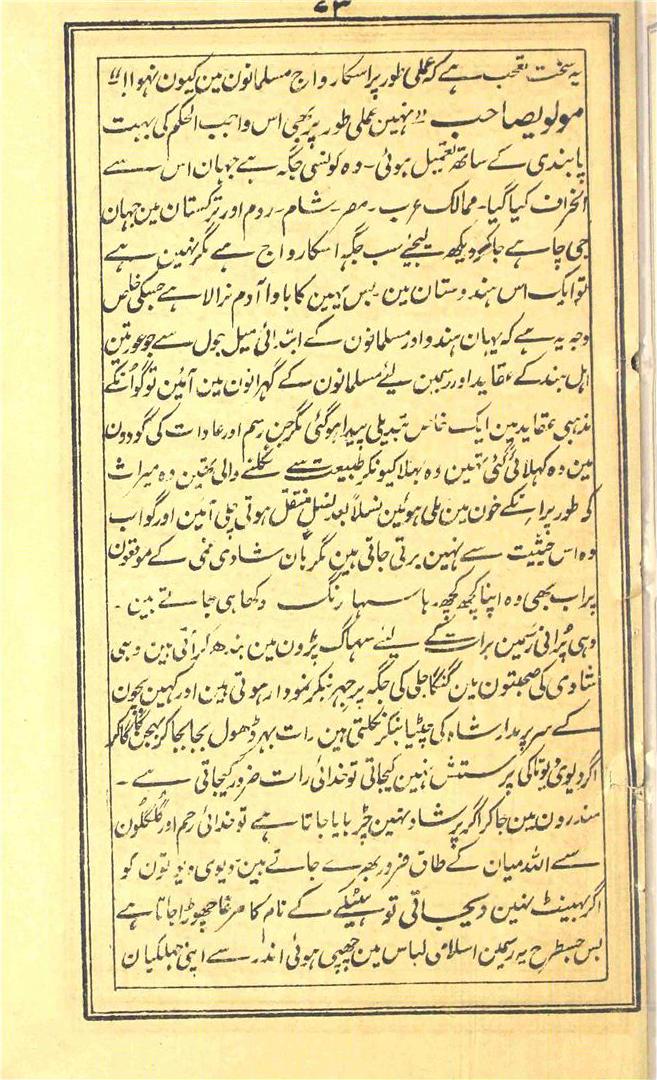 ۷۳
یہ سخت تعجب ہے کہ عملی طور پر اسکا رواج مسلمانون مین کیون نہوا!!"
مولویصاحب "نہین عملی طور پر بھی اس واجب الحکم کی بہت
پابندی کے ساتھ تعمیل ہوئی - وہ کونسی جگہ ہے جہان اس سے
انحراف کیا گیا - ممالک عرب - مصر - شام - روم اور ترکستان مین جہان
جی چاہے جاکر دیکھ لیجئے سب جگہ اسکا رواج ہے مگر نہین ہے
تو ایک اس ہندوستان مین - بس یہین کا باوا آدم نرالا ہے جسکی خاص
وجہ یہ ہے کہ یہان ہندو اور مسلمانون کے ابتدائی میل جول سے جو عورتین
اہل ہند کے عقاید اور رسمین لئے مسلمانون کے گہرانون مین آئین تو گو اُنکے
مذہبی عقاید مین ایک خاص تبدیلی پیدا ہوگئی مگر جن رسم اور عادات کی گودون
مین وہ کہلائی گئی تہین وہ بہلا کیونکر طبیعت سے نکلنے والی تہین وہ میراث
کی طور پر انکے خون مین ملی ہوئین نسلاً بعد نسلٍ منتقل ہوتی چلی آئین اور گو اب
وہ اس حیثیت سے نہین برتی جاتی ہین مگر ہان شادی غمی کے موقعون
پر اب بھی وہ اپنا کچھ کچھ رہا سہا رنگ دکھا ہی جاتے ہین -
وہی پُرانی رسمین برات کے لئے سہاگ پڑون مین بندھ کر آتی ہین وہی
شادی کی صحبتون مین گنگا جلی کی جگہ پر جہر بنکر نمودار ہوتی ہین اور کہین بچون
کے سر پر مدار شاہ کی چٹیا بنکر نکلتی ہین رات بہر ڈھول بجا بجا کر بہجن گا گا کر
اگر دیوی دیوتا کی پرستش نہین کیجاتی تو خدائی رات ضرور کیجاتی ہے -
مندرون مین جا کر اگر پرشاد نہین چڑہایا جاتا ہے تو خدائی رحم اور گلگلون
سے اللہ میان کے طاق ضرور بھرے جاتے ہین دیوی دیوتون کو
اگر بہینٹ نہین دیجاتی تو کے نام کا مرغا چھوڑا جاتا ہے
بس جسطرح یہ رسمین اسلامی لباس مین چھپی ہوئی اندر سے اپنی جہلکیان